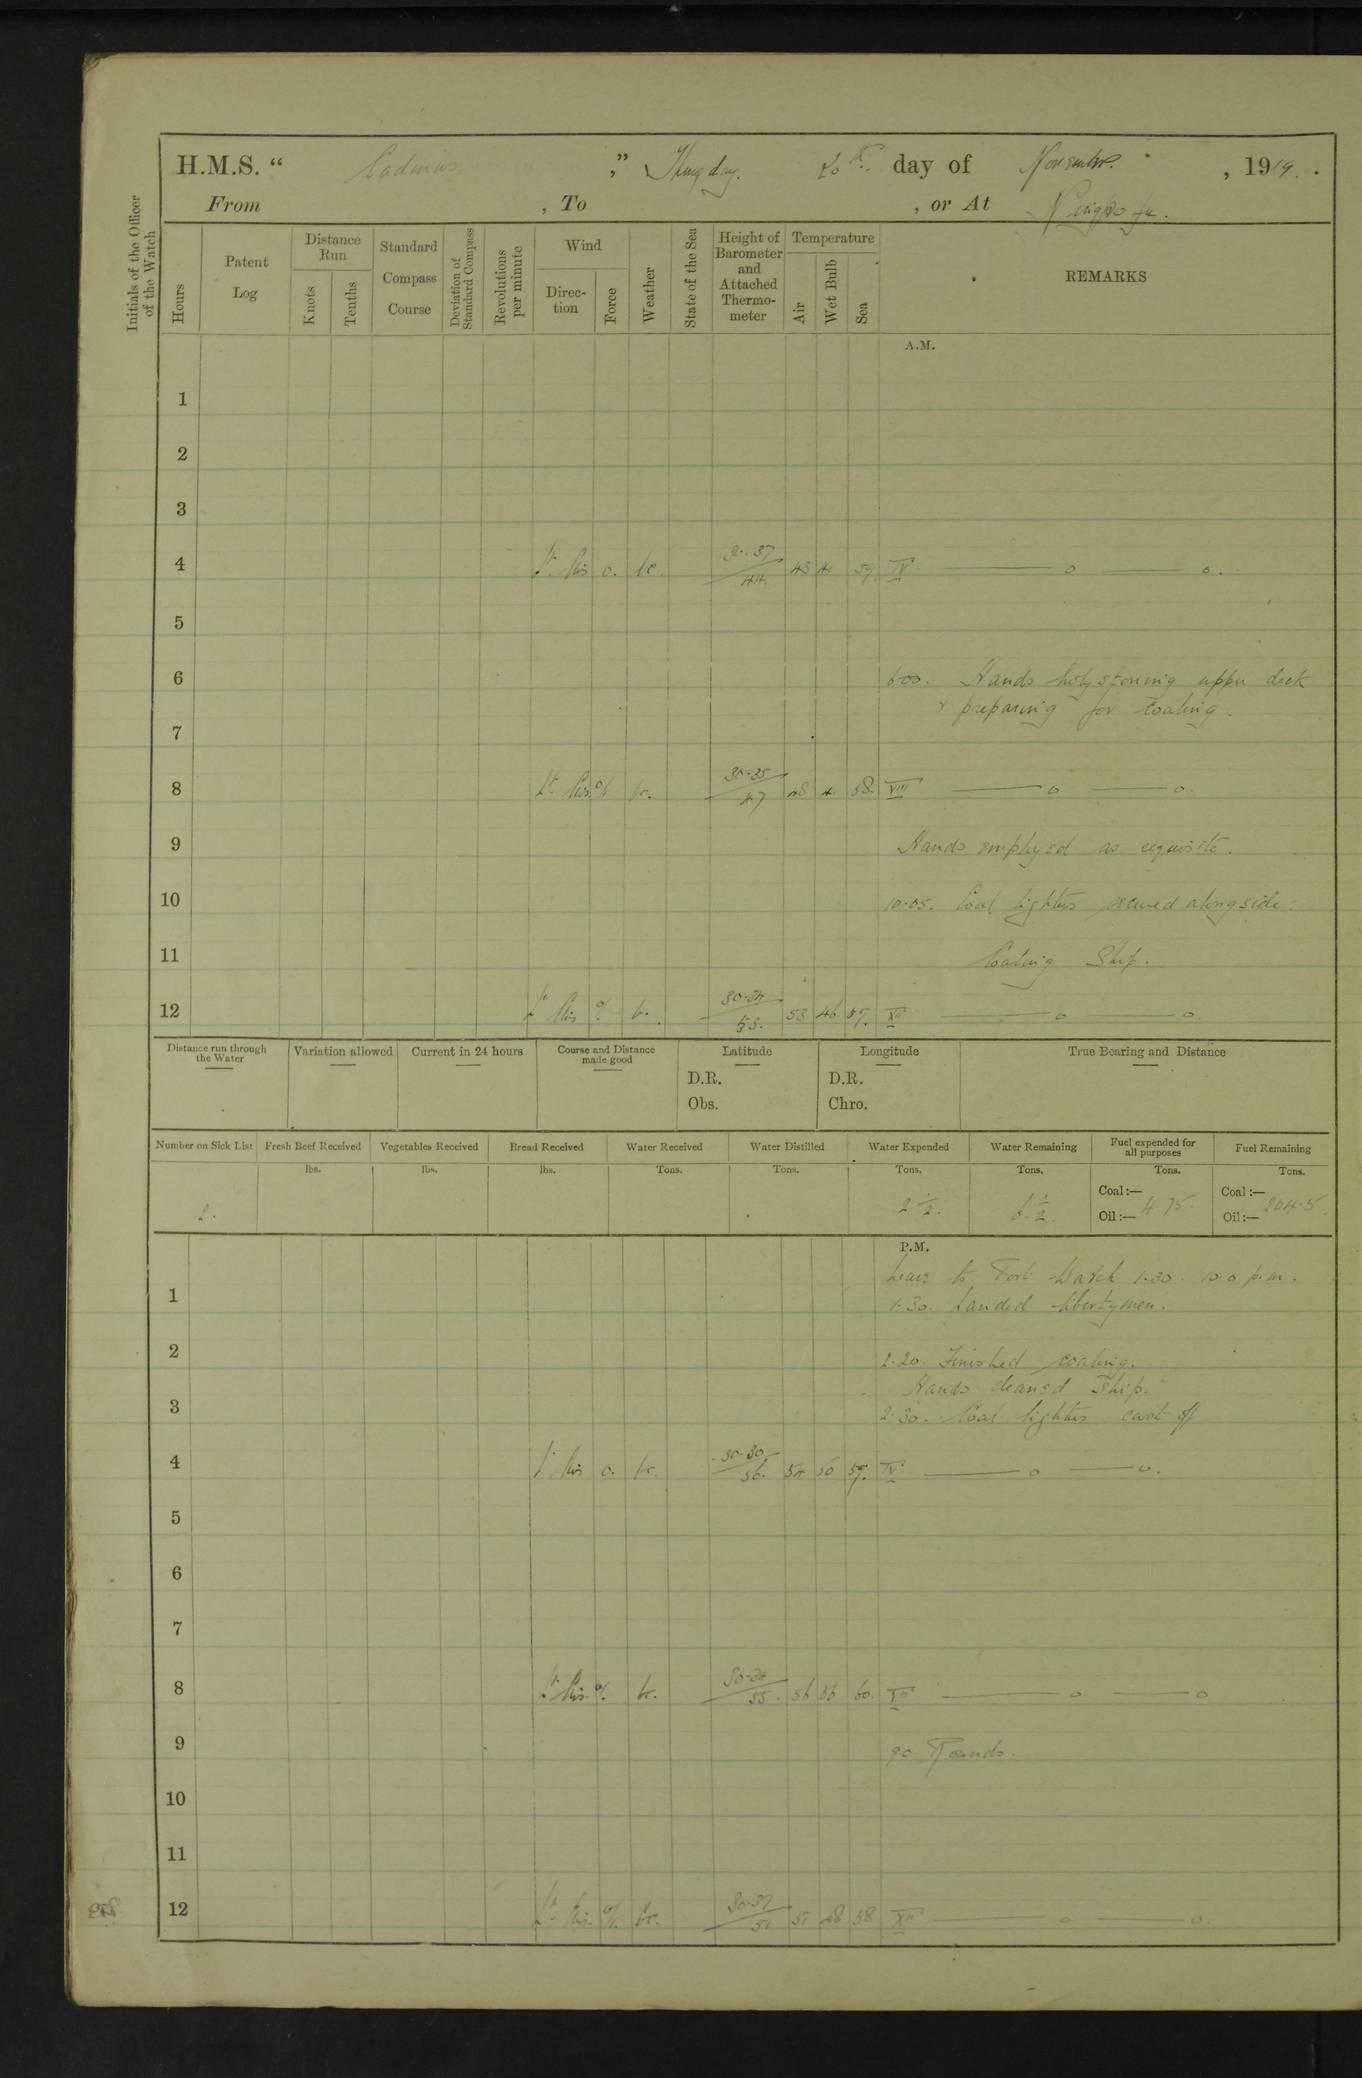 H.M.S. “ Cadmus. ,” Thursday. 20th day of November. , 1919.
From , To , or At Ningpo
Initials of the Officer of the Watch
Hours
Patent Log
Distance Run
Knots
Tenths
Standard Compass Course
Deviation of Standard Compass
Revolutions per minute
Wind
Direction
Force
Weather
State of the Sea
Height of Barometer and Attached Thermometer
Temperature
Air
Wet Bulb
Sea
REMARKS
A.M.
1
2
3
4 Lt. Airs 0. bc. 30.37 / 44. 43 41 59. IV
5
6 6.00. Hands holystoning upper deck
& preparing for coaling.
7
8 Lt. Airs 0/1 bc. 30.35 / 47 48 58. VIII
9 Hands employed as requisite.
10 10.05. Coal lighters secured alongside.
11 Coaling Ship.
12 Lt Airs 0/1 bc. 30.34 / 53. 53 46 59. XII
Distance run through the Water
Variation allowed
Current in 24 hours
Course and Distance made good
Latitude
D.R.
Obs.
Longitude
D.R.
Chro.
True Bearing and Distance
Number on Sick List
Fresh Beef Received
Vegetables Received
Bread Received
Water Received
Water Distilled
Water Expended
Water Remaining
Fuel expended for all purposes
Fuel Remaining
lbs. lbs. lbs. Tons. Tons. Tons. Tons. Tons. Tons.
2. 2 1/2. 6 1/2 Coal:— Oil:— 4.75 Coal:— Oil:— 204.5
P.M.
Leave to Port Watch 1.30. 10.0 p.m.
1 1.30. Landed libertymen.
2 2.20. Finished coaling.
Hands cleaned Ship.
3 2.30. Coal lighters cast off
4 Lt Airs 0. bc. 30.30 / 56. 54 50 59. IV
5
6
7
8 Lt Airs. 0/1. bc. 30.34 / 55. 56 56 60. VIII
9 9.0 Rounds.
10
11
12 Lt. Airs. 0/1. bc. 30.37 / 51 51 48 58 XII